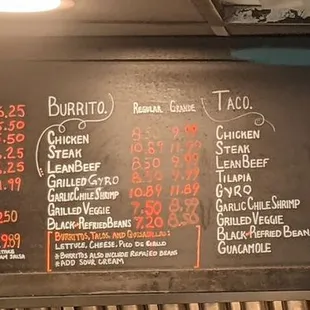 BURRITO. REGULAR GRANDE
CHICKEN 8.50 9.99
STEAK 10.89 11.99
LEAN BEEF 8.50 9.99
GRILLED GYRO 8.50 9.99
GARLIC CHILE SHRIMP 10.89 11.89
GRILLED VEGGIE 7.50 8.99
BLACK-REFRIED BEANS 7.20 8.50
BURRITOS, TACOS, AND QUESADILLAS:
LETTUCE, CHEESE, PICO DE GALLO
BURRITOS ALSO INCLUDE REFRIED BEANS
ADD SOUR CREAM
TACO.
CHICKEN
STEAK
LEAN BEEF
TILAPIA
GYRO
GARLIC CHILE SHRIMP
GRILLED VEGGIE
BLACK-REFRIED BEAN
GUACAMOLE